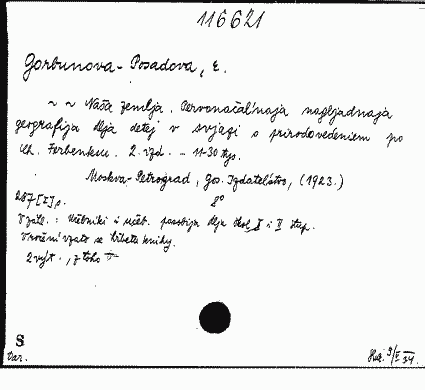 116621
Gorbunova-Posadova, E.
~ ~ Naša zemlja. Pervonačal'naja nagljadnaja
geografija dlja detej v svjazi s prirodovedeniem po
Ferbenksu. 2. izd. - 11-30 tys.
Moskva-Petrograd, Gos. Izdatel'stvo, (1923.)
8°
287 [I] p.
V záhl.: Učebniki i učeb. posobija dlja škol I i II stup.
Vročení vzato se hřbetu knihy.
2 výt., z toho
S
Var.